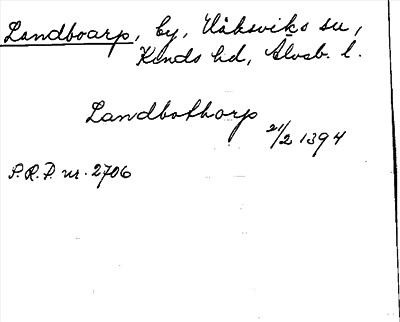 Landboarp, by, Håksviks sn,
Kinds hd, Älvsb. l.
Landbothorp
21/2 1394
S.R.P. nr. 2706